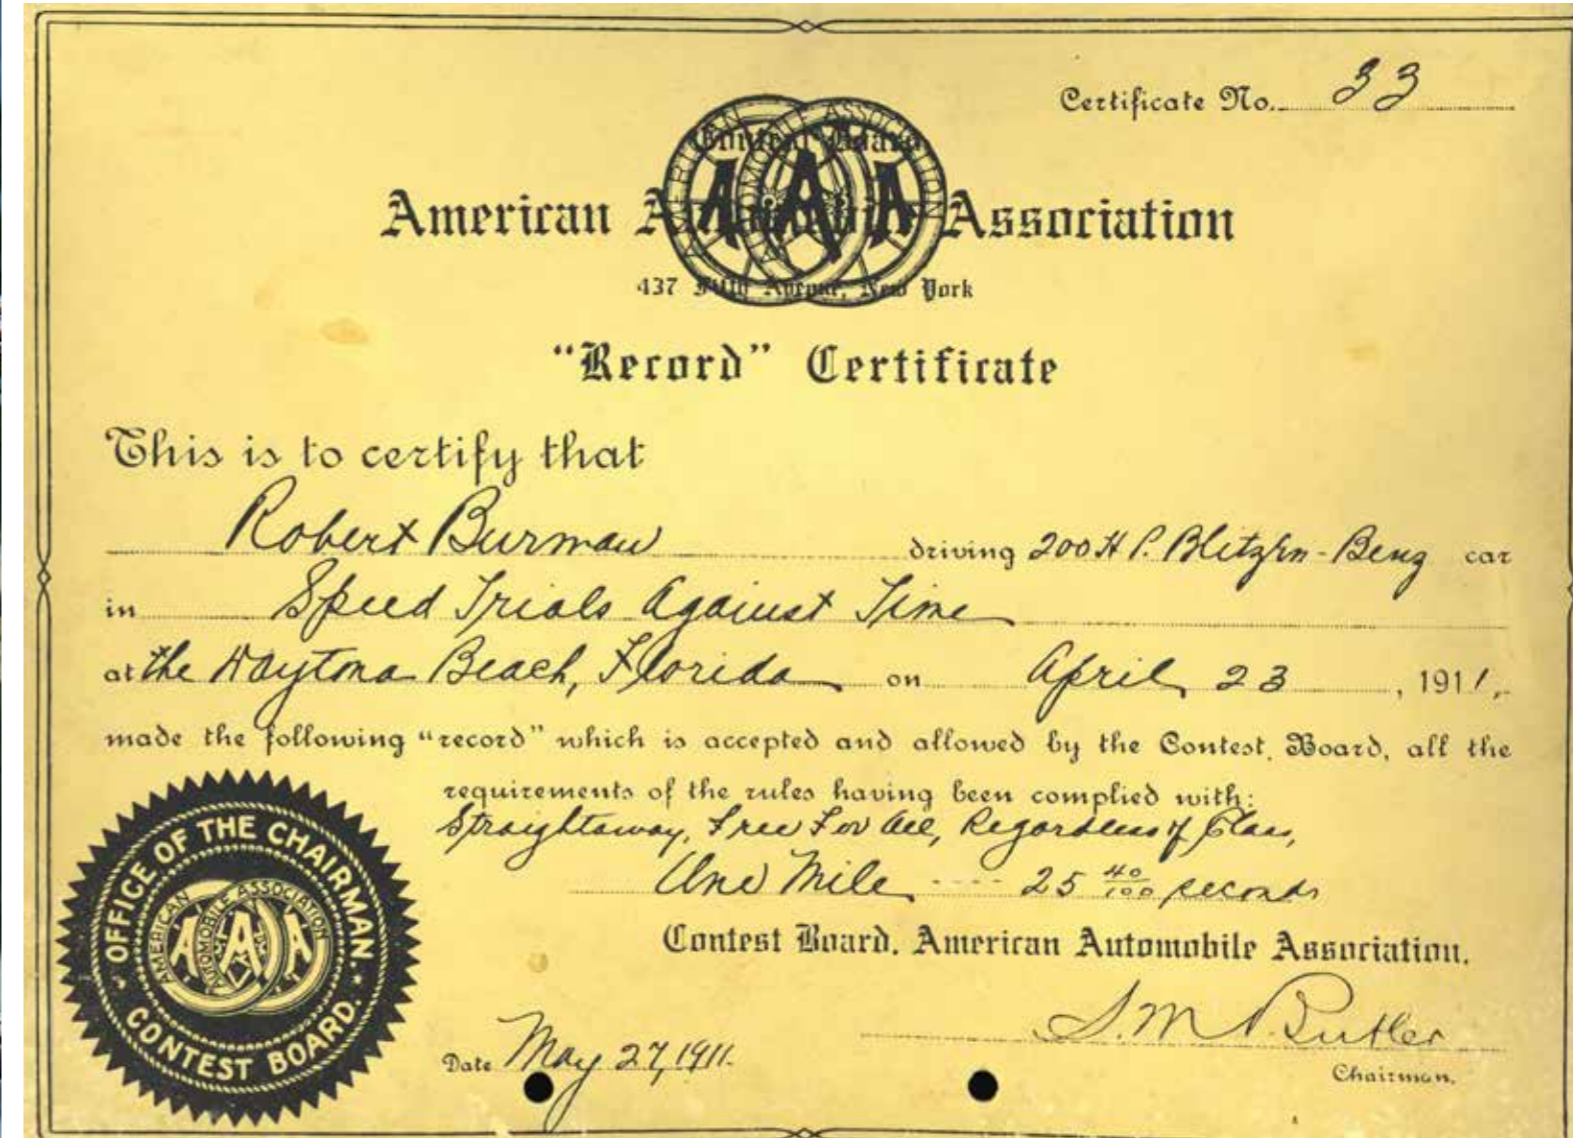 Certificate No. 33
Contest Board
AMERICAN AUTOMOBILE ASSOCIATION
AAA
American Automobile Association
437 Fifth Avenue, New York
"Record" Certificate
This is to certify that
Robert Burman driving 200 H P. Blitzen-Benz car
in Speed Trials Against Time
at the Daytona Beach, Florida on April 23, 1911,
made the following "record" which is accepted and allowed by the Contest Board, all the
requirements of the rules having been complied with:
Straightaway, Free For All, Regardless of Class,
One Mile ---- 25 40/100 seconds
Contest Board. American Automobile Association.
S. M. Butler
Chairman.
Date May 27, 1911.
OFFICE OF THE CHAIRMAN.
CONTEST BOARD.
AMERICAN AUTOMOBILE ASSOCIATION
AAA